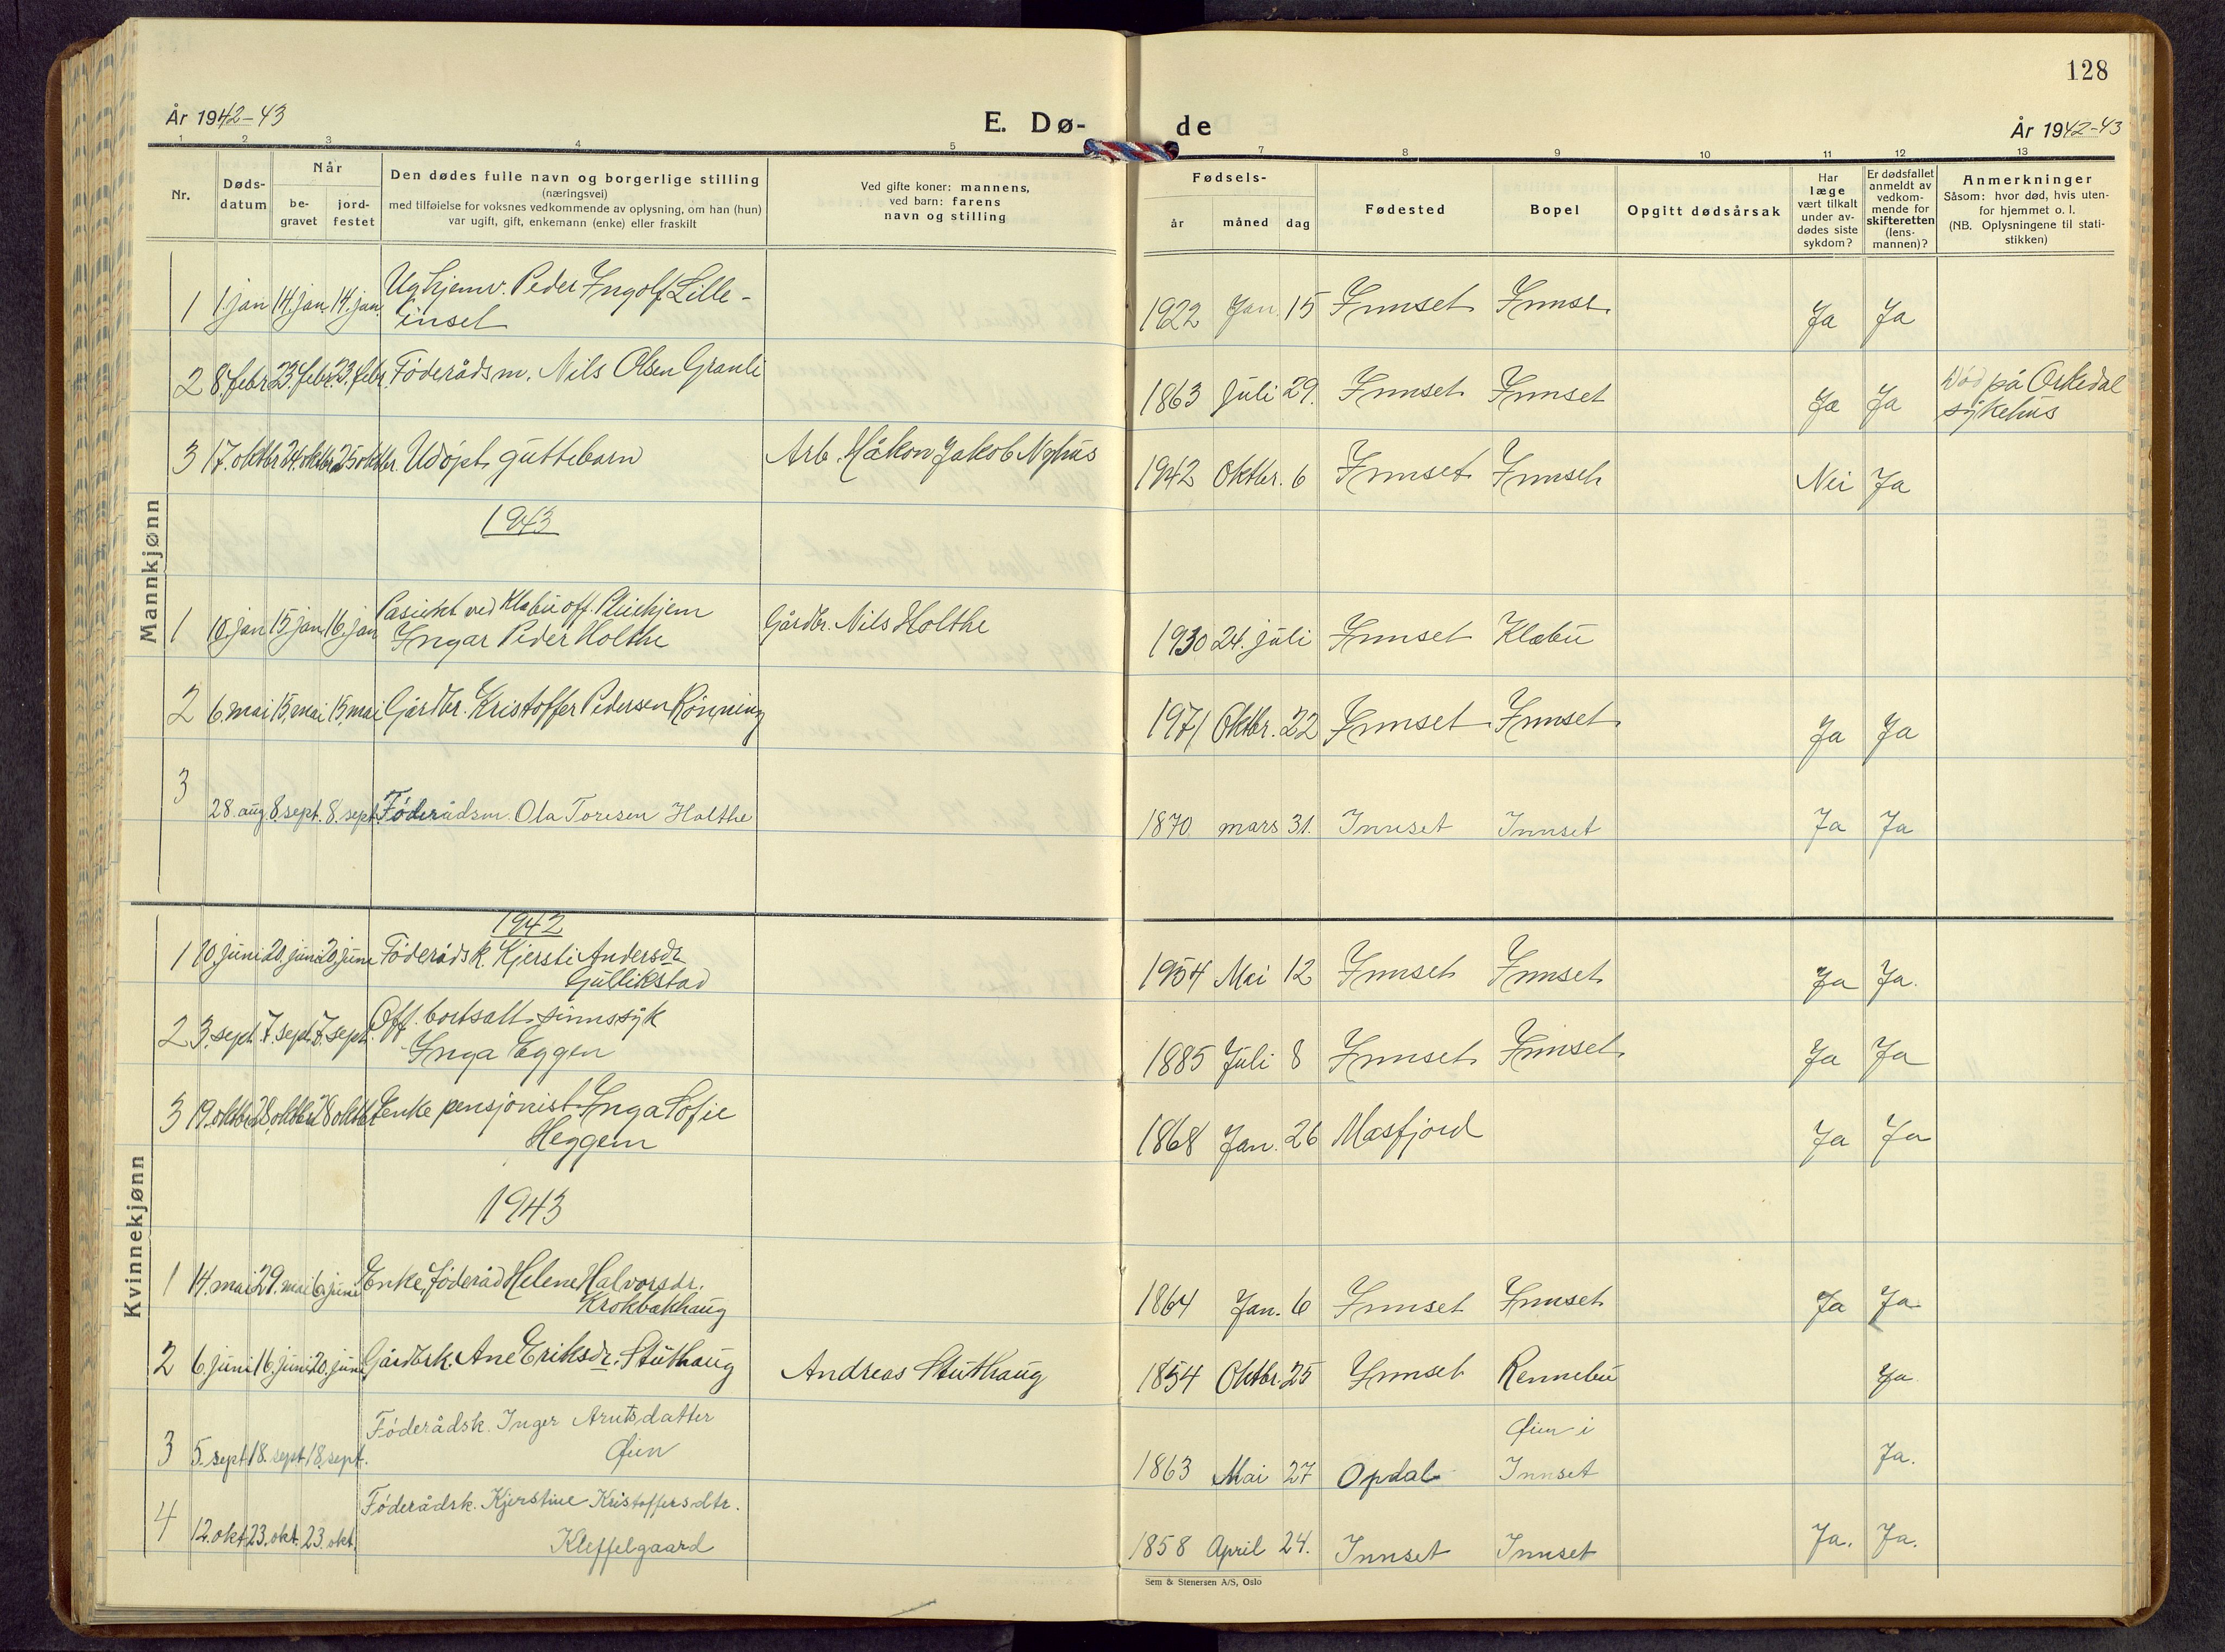 128
År 1942-43
E. Dø-
de
År 1942-43
1 2 3 4 5 7 8 9 10 11 12 13
Nr.
Døds-
datum
Når
be-
gravet
jord-
festet
Den dødes fulle navn og borgerlige stilling
(næringsvei)
med tilføielse for voksnes vedkommende av oplysning, om han (hun)
var ugift, gift, enkemann (enke) eller fraskilt
Ved gifte koner: mannens,
ved barn: farens
navn og stilling
Fødsels-
år måned dag
Fødested
Bopel
Opgitt dødsårsak
Har
læge
vært tilkalt
under av-
dødes siste
sykdom?
Er dødsfallet
anmeldt av
vedkom-
mende for
skifteretten
(lens-
mannen)?
Anmerkninger
Såsom: hvor død, hvis uten-
for hjemmet o. l.
(NB. Oplysningene til stati-
stikken)
Mannkjønn
1 1. jan 14. jan. 14. jan. Ug hjemv. Peder Ingolf Lille-
inset
1922 Jan. 15 Innset Innset Ja Ja
2 8. febr 23. febr. 23. febr. Föderådsm. Nils Olsen Granli
1863 Juli 29. Innset Innset Ja Ja Död på Orkedal
sykehus
3 17. oktbr 24. oktbr 25 oktbr. Udöpt guttebarn Arb. Håkon Jakob Nyhus
1942 Oktbr. 6 Innset Innset Nei Ja
1943
1 10. jan 15 jan 16. jan Pasient ved Klæbu off. Pleiehjem
Ingar Peder Holthe Gårdbr. Nils Holthe
1930 24. juli Innset Klæbu
2 6. mai 15. mai 15. mai Gårdbr. Kristoffer Pedersen Rönning
1971 Oktbr. 22 Innset Innset Ja Ja
3 28. aug. 8. sept. 8. sept. Föderådsm. Ola Toresen Holthe
1870 mars 31. Innset Innset Ja Ja
Kvinnekjønn
1942
1 10. juni 20. juni 20 june Föderådsk. Kjersti Andersdr
Gullikstad
1954 Mai 12 Innset Innset Ja Ja.
2 3. sept. 7. sept. 7. sept. Off. bortsatt sinnssyk
Inga Eggen
1885 Juli 8 Innset Innset Ja Ja
3 19. oktbr 28. oktbr 28 oktbr Enke pensjonist Inga Sofie
Heggem
1868 Jan. 26 Masfjord Ja Ja
1943
1 14. mai 29. mai 6. june Enke, föderåd Helene Halvorsdr.
Krokbækhaug
1864 Jan. 6 Innset Innset Ja Ja
2 6. juni 16. juni 20. juni Gårdbrk. Ane Eriksdr. Stuthaug Andreas Stuthaug
1854 Oktbr. 25 Innset Rennebu Ja
3 5. sept 18. sept. 18. sept. Föderådsk. Inger Arntsdatter
Øien
1863 Mai 27 Opdal Øien i
Innset Ja.
4 12. okt. 23. okt. 23. okt. Föderådsk. Kjerstine Kristoffersdtr.
Kleffelgaard
1858 April 24. Innset Innset Ja. Ja.
Sem & Stenersen A/S, Oslo